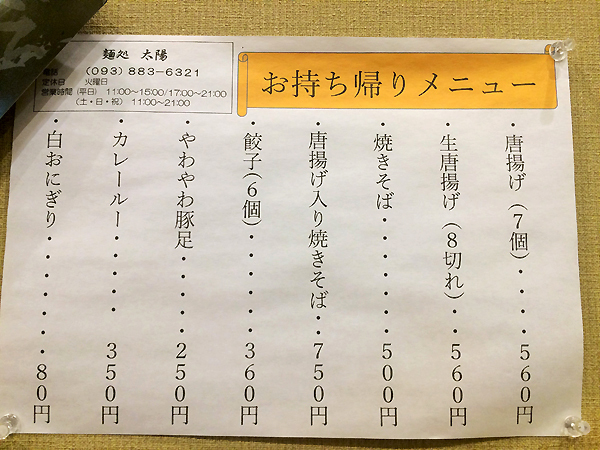 麺処 太陽
電話 (093) 883-6321
定休日 火曜日
営業時間 (平日) 11:00~15:00/17:00~21:00
(土・日・祝) 11:00~21:00
お持ち帰りメニュー
・唐揚げ(7個)・・・・560円
・生唐揚げ(8切れ)・・560円
・焼きそば・・・・・・500円
・唐揚げ入り焼きそば・・750円
・餃子(6個)・・・・・360円
・やわやわ豚足・・・・250円
・カレールー・・・・350円
・白おにぎり・・・・・・80円